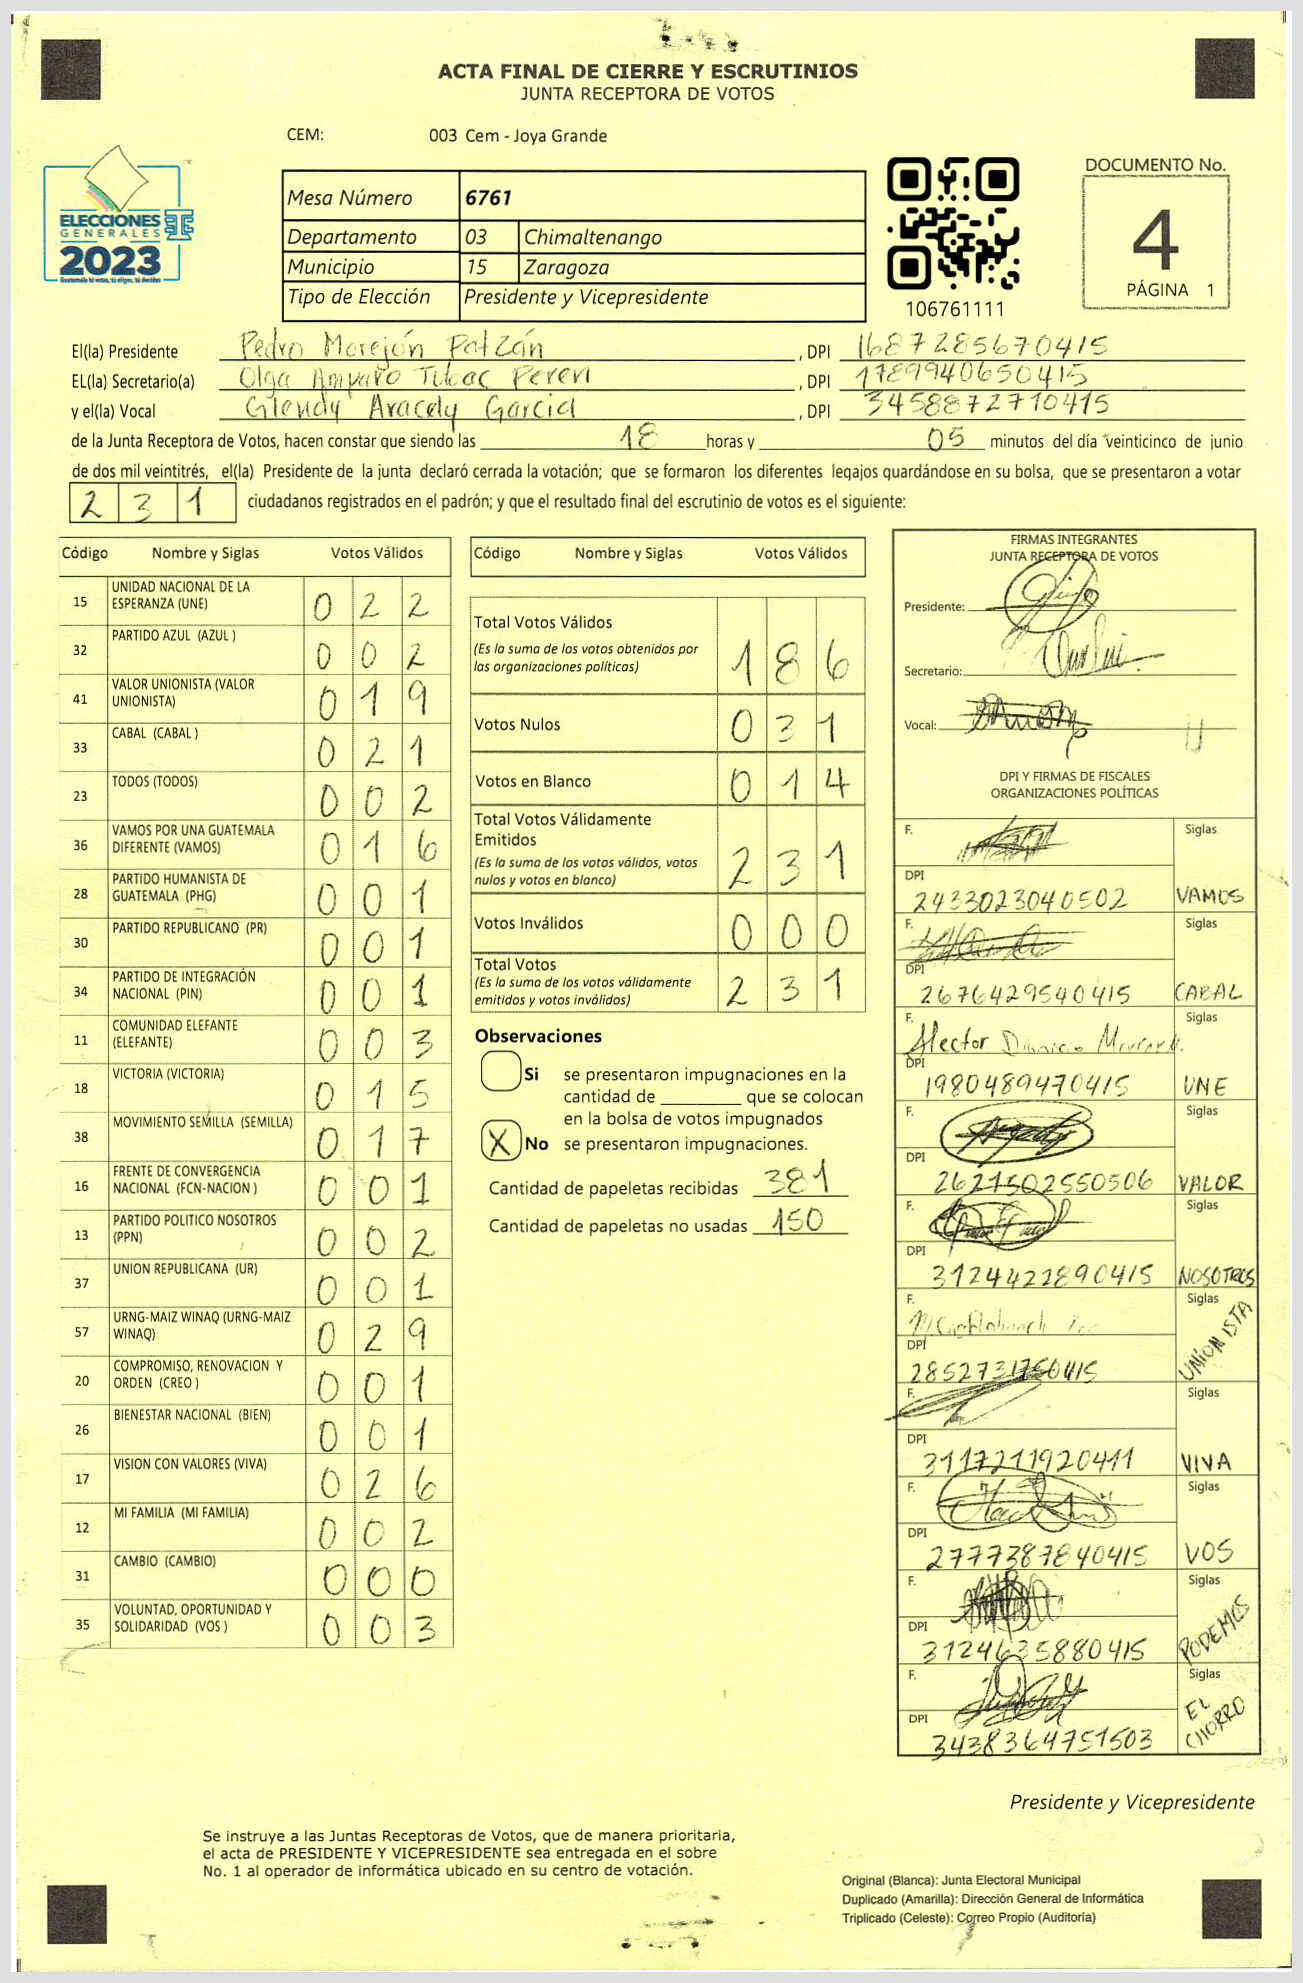 ACTA FINAL DE CIERRE Y ESCRUTINIOS
JUNTA RECEPTORA DE VOTOS
CEM: 003 Cem - Joya Grande
ELECCIONES
GENERALES
2023
Mesa Número 6761
Departamento 03 Chimaltenango
Municipio 15 Zaragoza
Tipo de Elección Presidente y Vicepresidente
106761111
DOCUMENTO No.
4
PÁGINA 1
El(la) Presidente Pedro Morejón Patzán , DPI 1687285670415
EL(la) Secretario(a) Olga Amparo Tubac Pereri , DPI 1789940650415
y el(la) Vocal Glendy Aracely García , DPI 3458872710415
de la Junta Receptora de Votos, hacen constar que siendo las 18 horas y 05 minutos del día veinticinco de junio
de dos mil veintitrés, el(la) Presidente de la junta declaró cerrada la votación; que se formaron los diferentes legajos guardándose en su bolsa, que se presentaron a votar
231 ciudadanos registrados en el padrón; y que el resultado final del escrutinio de votos es el siguiente:
Código Nombre y Siglas Votos Válidos
15 UNIDAD NACIONAL DE LA ESPERANZA (UNE) 022
32 PARTIDO AZUL (AZUL ) 002
41 VALOR UNIONISTA (VALOR UNIONISTA) 019
33 CABAL (CABAL ) 021
23 TODOS (TODOS) 002
36 VAMOS POR UNA GUATEMALA DIFERENTE (VAMOS) 016
28 PARTIDO HUMANISTA DE GUATEMALA (PHG) 001
30 PARTIDO REPUBLICANO (PR) 001
34 PARTIDO DE INTEGRACIÓN NACIONAL (PIN) 001
11 COMUNIDAD ELEFANTE (ELEFANTE) 003
18 VICTORIA (VICTORIA) 015
38 MOVIMIENTO SEMILLA (SEMILLA) 017
16 FRENTE DE CONVERGENCIA NACIONAL (FCN-NACION ) 001
13 PARTIDO POLITICO NOSOTROS (PPN) 002
37 UNION REPUBLICANA (UR) 001
57 URNG-MAIZ WINAQ (URNG-MAIZ WINAQ) 029
20 COMPROMISO, RENOVACION Y ORDEN (CREO ) 001
26 BIENESTAR NACIONAL (BIEN) 001
17 VISION CON VALORES (VIVA) 026
12 MI FAMILIA (MI FAMILIA) 002
31 CAMBIO (CAMBIO) 000
35 VOLUNTAD, OPORTUNIDAD Y SOLIDARIDAD (VOS ) 003
Código Nombre y Siglas Votos Válidos
Total Votos Válidos 186
(Es la suma de los votos obtenidos por
las organizaciones políticas)
Votos Nulos 031
Votos en Blanco 014
Total Votos Válidamente
Emitidos 231
(Es la suma de los votos válidos, votos
nulos y votos en blanco)
Votos Inválidos 000
Total Votos 231
(Es la suma de los votos válidamente
emitidos y votos inválidos)
Observaciones
Si se presentaron impugnaciones en la
cantidad de ________ que se colocan
en la bolsa de votos impugnados
X No se presentaron impugnaciones.
Cantidad de papeletas recibidas 381
Cantidad de papeletas no usadas 150
FIRMAS INTEGRANTES
JUNTA RECEPTORA DE VOTOS
Presidente:
Secretario:
Vocal:
DPI Y FIRMAS DE FISCALES
ORGANIZACIONES POLÍTICAS
F. Siglas
DPI
2433023040502 VAMOS
F. Siglas
DPI
2676429540415 CABAL
F. Hector Siglas
DPI
1980489470415 UNE
F. Siglas
DPI
2621502550506 VALOR
F. Siglas
DPI
3124422890415 NOSOTROS
F. Siglas
DPI
2852731750415 UNIONISTA
F. Siglas
DPI
3117211920411 VIVA
F. Siglas
DPI
2777387840415 VOS
F. Siglas
DPI
3124635880415 PODEMOS
F. Siglas
DPI
3438364751503 EL CHORRO
Presidente y Vicepresidente
Se instruye a las Juntas Receptoras de Votos, que de manera prioritaria,
el acta de PRESIDENTE Y VICEPRESIDENTE sea entregada en el sobre
No. 1 al operador de informática ubicado en su centro de votación.
Original (Blanca): Junta Electoral Municipal
Duplicado (Amarilla): Dirección General de Informática
Triplicado (Celeste): Correo Propio (Auditoría)